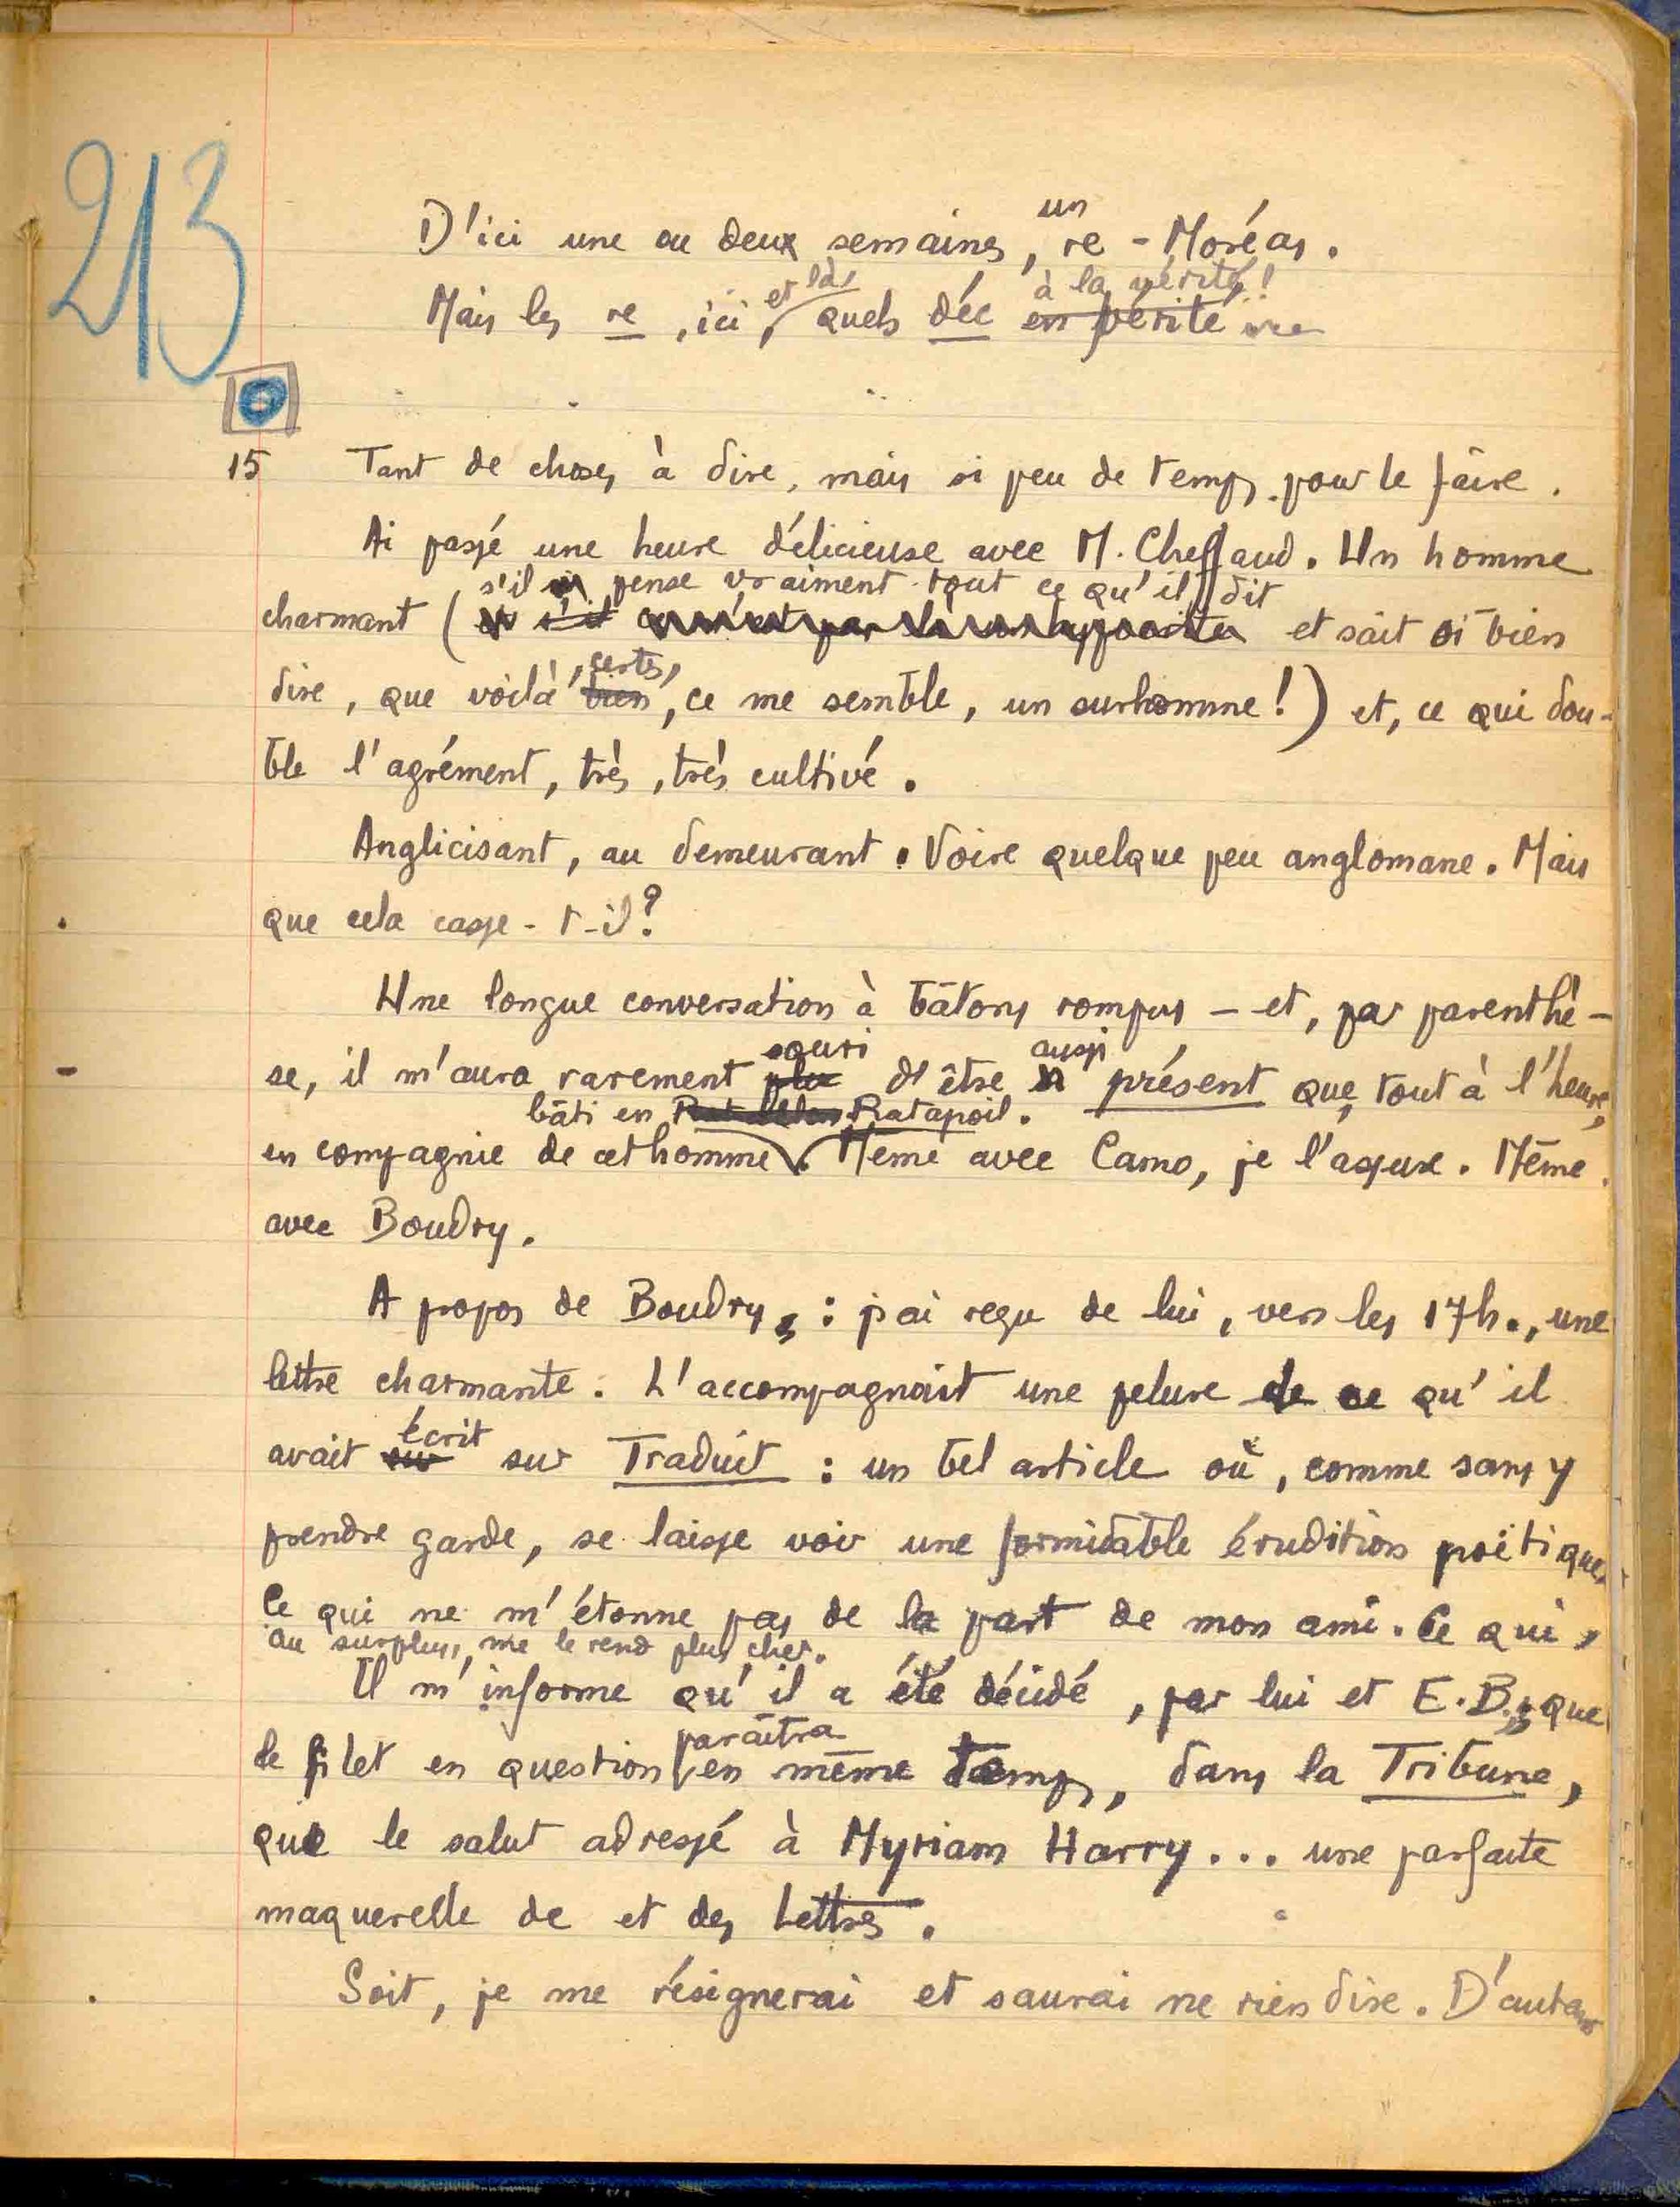 213
D'ici une ou deux semaines, un re-Moréas.
Mais les re, ici et là, quels déc en vérité à la vérité!
15 Tant de choses à dire, mais si peu de temps pour le faire.
Ai passé une heure délicieuse avec M. Cheffaud. Un homme
s'il pense vraiment tout ce qu'il dit
charmant ( et sait si bien
dire, que voilà bien, certes, ce me semble, un surhomme!) et, ce qui dou-
ble l'agrément, très, très cultivé.
Anglicisant, au demeurant. Voire quelque peu anglomane. Mais
que cela casse-t-il?
Une longue conversation à bâtons rompus – et, par parenthè-
se, il m'aura rarement plu souri d'être aussi présent que, tout à l'heure,
bâti en Ratapoil.
en compagnie de cet homme. Même avec Camo, je l'assure. Même
avec Boudry.
A propos de Boudry : j'ai reçu de lui, vers les 17h., une
lettre charmante. L'accompagnait une pelure de ce qu'il
avait sur écrit sur Traduit : un bel article où, comme sans y
prendre garde, se laisse voir une formidable érudition poétique.
Ce qui ne m'étonne pas de la part de mon ami. Ce qui,
au surplus, me le rend plus cher.
Il m'informe qu'il a été décidé, par lui et E.B., que
le filet en question paraîtra en même temps, dans la Tribune,
que le salut adressé à Myriam Harry... une parfaite
maquerelle de et des Lettres.
Soit, je me résignerai et saurai ne rien dire. D'autant